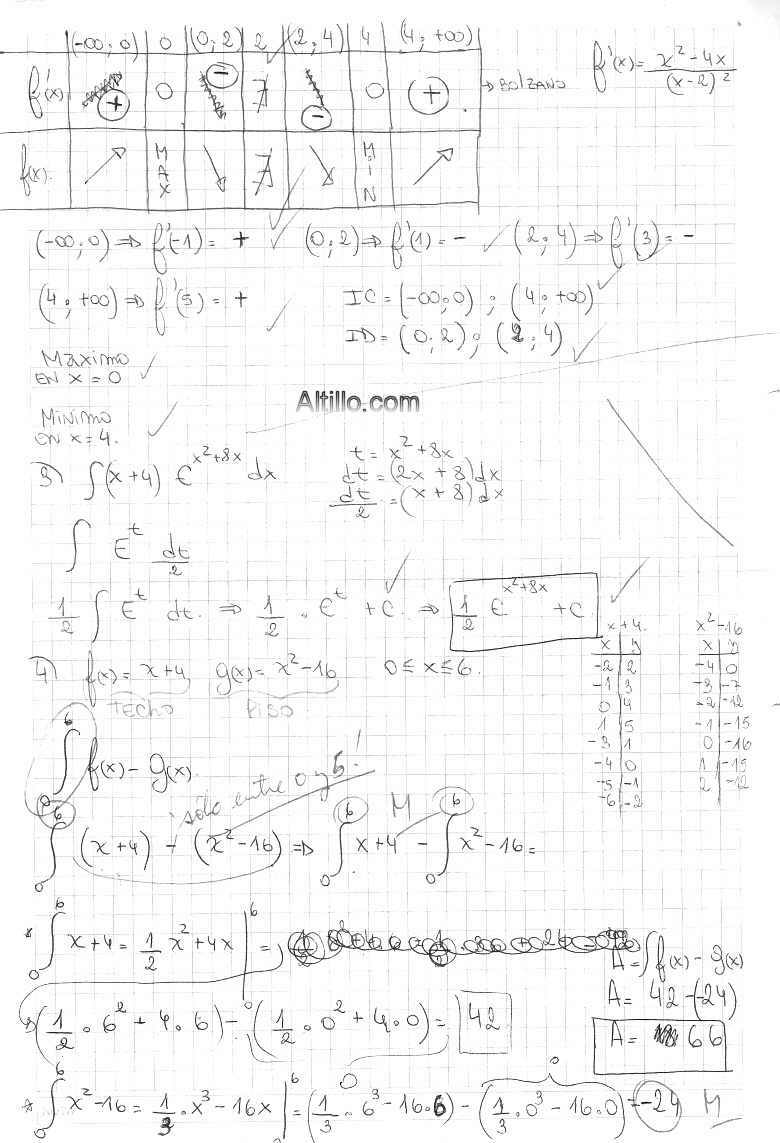 (-∞; 0) | 0 | (0; 2) | 2 | (2; 4) | 4 | (4; +∞)
f'(x) | + | 0 | - | ∄ | - | 0 | + → BOLZANO
f'(x) = (x² - 4x)/(x-2)²
f(x). | ↗ | MAX | ↘ | ∄ | ↘ | MIN | ↗
(-∞; 0) ⇒ f'(-1) = + ✓ (0; 2) ⇒ f'(1) = - ✓ (2; 4) ⇒ f'(3) = -
(4; +∞) ⇒ f'(5) = + ✓ IC = (-∞; 0) ; (4; +∞) ✓
ID = (0; 2) ; (2; 4) ✓
Máximo
EN x = 0 ✓
Altillo.com
Mínimo
EN x = 4. ✓
3) ∫(x+4) e^(x²+8x) dx
t = x² + 8x
dt = (2x + 8) dx
dt/2 = (x + 8) dx
∫ e^t dt/2
1/2 ∫ e^t dt. ⇒ 1/2 . e^t + C ⇒ 1/2 e^(x²+8x) + C ✓
4) f(x) = x+4 g(x) = x²-16 0 ≤ x ≤ 6.
TECHO PISO
x+4.
x | y
-2 | 2
-1 | 3
0 | 4
1 | 5
-3 | 1
-4 | 0
-5 | -1
-6 | -2
x²-16
x | y
-4 | 0
-3 | -7
-2 | -12
-1 | -15
0 | -16
1 | -15
2 | -12
∫₀⁶ f(x) - g(x).
sólo entre 0 y 5!
∫₀⁶ (x+4) - (x²-16) ⇒ ∫₀⁶ x+4 - ∫₀⁶ x²-16 =
M
* ∫₀⁶ x+4 = 1/2 x² + 4x |₀⁶ =
A = ∫f(x) - g(x)
A = 42 - (-24)
A = 66
⇒ (1/2 . 6² + 4.6) - (1/2 . 0² + 4.0) = 42
0
* ∫₀⁶ x²-16 = 1/3 . x³ - 16x |₀⁶ = (1/3 . 6³ - 16.6) - (1/3 . 0³ - 16.0) = -24 M
0